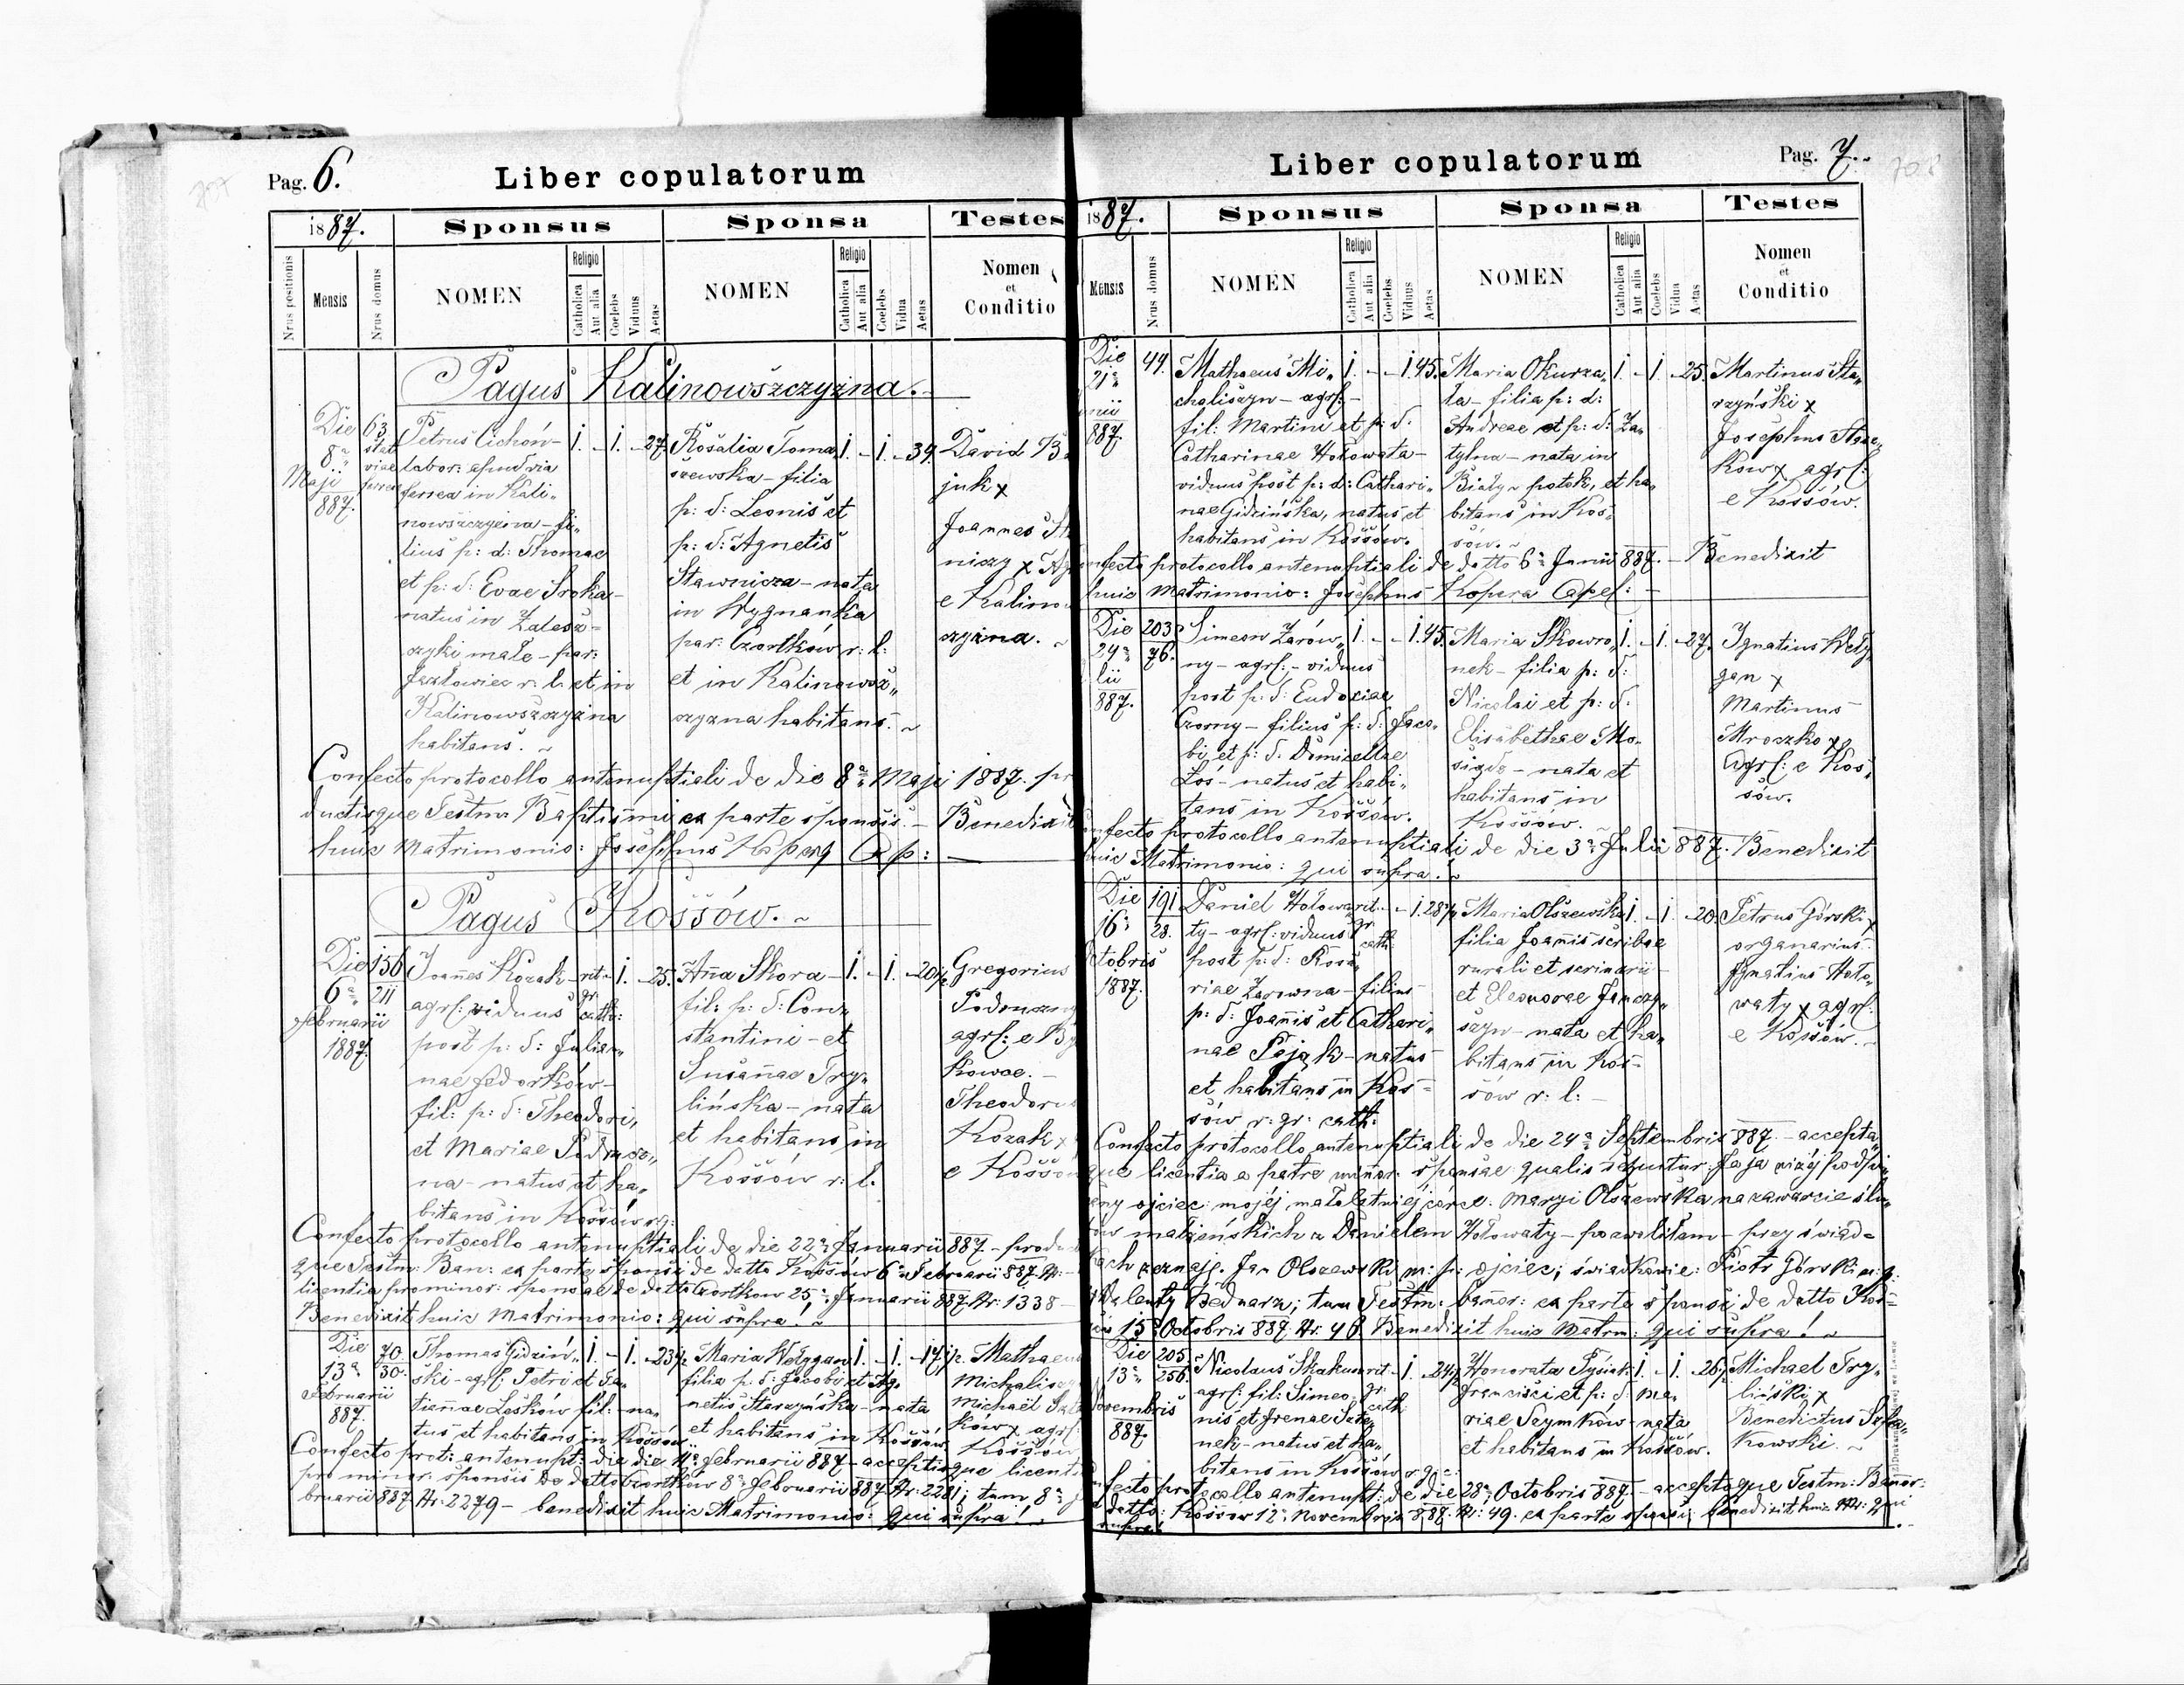 Pag. 6.
Liber copulatorum
1887.
Sponsus
Sponsa
Testes
Nrus positionis
Mensis
Nrus domus
NOMEN
Religio
Catholica
Aut alia
Coelebs
Viduus
Aetas
NOMEN
Religio
Catholica
Aut alia
Coelebs
Vidua
Aetas
Nomen
et
Conditio
Pagus Kalinowszczyzna.
Die 8a Maji 887.
63
Petrus Cichoń
1. - 1. - 27.
labor: apud via
ferrea in Kali-
nowszczyzna - fi-
lius p: d: Thomae
et p: d: Evae Sroka
natus in Zalesz-
czyki małe - par:
Jazłowiec r. l. et in
Kalinowszczyzna
habitans.
Rosalia Toma
1. - 1. - 39.
szewska - filia
p: d: Leonis et
p: d: Agnetis
Stawnicza - nata
in Wygnanka
par: Czortków r: l:
et in Kalinowsz-
czyzna habitans.
David
juk x
Joannes
niczy x
e Kalinow
czyzna.
Confecto protocollo antenuptiali de die 8a Maji 1887.
ductisque Testm Baptismi ex parte sponsis. - Benedixit
huic Matrimonio: Josephus
Pagus Kossów.
Die 6a Februarii 1887.
156
211
Joannes Kozak
rit. gr. cath: - 1. - 25.
agrl: viduus
post p: d: Julian-
nae Fedorków
fil: p: d: Theodori,
et Mariae
na - natus et ha-
bitans in Kossów
Anna Skora
1. - 1. - 20½
fil: p: d: Con-
stantini - et
Susannae Try-
lińska - nata
et habitans in
Kossów r: l.
Gregorius
agrl: e
kowce.
Theodor
Kozak x
e Kossów
Confecto protocollo antenuptiali de die 22a Januarii 887 -
que Testm: Ban: ex parte sponsi de datto Kossów 6a Februarii 887
licentia pro minor: sponsae de datto Czortkow 25a Januarii 887 Nr: 1338
Benedixit huic Matrimonio: qui supra!
Die 13a Februarii 887.
70.
30.
Thomas Gidziń-
1. - 1. - 23½
ski - agrl: Petri et Ta-
tiannae Leśków fil: - na-
tus et habitans in Kossów
Maria Wełygan
1. - 1. - 17½
filia p: d: Jacobi et Ag-
netis Starzyńska - nata
et habitans in Kossów
Mathaeus
Michalisz
Michael
ków x agrl:
Kossów
Confecto prot: antenupt: de die
Februarii 887 - acceptisque licenti
pro minor: sponsis de datto Czortków 8a Februarii 887 Nr: 2281; tum 8a
bruarii 887 Nr: 2279 - benedixit huic Matrimonio: qui supra!
Pag. 7.
Liber copulatorum
1887.
Sponsus
Sponsa
Testes
Mensis
Nrus domus
NOMEN
Religio
Catholica
Aut alia
Coelebs
Viduus
Aetas
NOMEN
Religio
Catholica
Aut alia
Coelebs
Vidua
Aetas
Nomen
et
Conditio
Die 21a
887.
44.
Mathaeus Mi-
1. - - 1. 45.
chaliszyn - agrl: -
fil: Martini et p: d:
Catharinae Hołowata -
viduus post p: d: Cathari-
nae Gidzińska, natus et
habitans in Kossów.
Maria Okurza-
1. - 1. - 25.
ta - filia p: d:
Andreae et p: d: Za-
tylna - nata in
Biały - potok, et ha-
bitans in Kos-
sów.
Martinus Sta-
rzyński x
Josephus
ków x agrl:
e Kossów.
protocollo antenuptiali de datto 6a Junii 887. - Benedixit
huic Matrimonio: Josephus Kopera
Die 24a
lii
887.
203
76.
Simeon Zarów-
1. - - 1. 45.
ny - agrl: - viduus
post p: d: Eudoxiae
Czorny - filius p: d: Jaco-
bi et p: d. Domicellae
Łoś - natus et habi-
tans in Kossów.
Maria Skowro-
1. - 1. - 27.
nek - filia p: d:
Nicolai et p: d:
Elisabethae Mo-
nata et
habitans in
Kossów.
Ignatius Wely-
gan x
Martinus
Mroczko x
agrl: e Kos-
sów.
protocollo antenuptiali de die 3a Julii 887. Benedixit
huic Matrimonio: qui supra!
Die 16a
ctobris
1887.
191
28.
Daniel Hołowa-
rit. gr. cath: - 1. 28½
ty - agrl: viduus
post p: d:
riae Zarowna - filius
p: d: Joannis et Cathari-
nae Pająk - natus
et habitans in Kos-
sów r: gr: cath:
Maria Olszewska
1. - 1. - 20.
filia Joannis scribae
rurali et scrinarii
et Eleonorae Janczy-
szyn - nata et ha-
bitans in Kos-
sów r: l: -
Petrus Górski x
organarius
Ignatius Hoło-
waty x agrl:
e Kossów.
Confecto protocollo antenuptiali de die 24a Septembris 887. - accepta
que licentia a patre minor: sponsae qualis sequitur: Ja niżej podpi-
ojciec mojéj małoletniéj córce Maryi Olszewska na zawarcie ślu-
małżeńskich z Danielem Hołowaty - pozwalam - przy świad-
kach zeznaję. Jan Olszewski m: p: ojciec; świadkowie: Piotr Górski m: p:
Walenty Bednarz; tum Testm: bannor: ex parte sponsi de datto Kos-
15 Octobris 887. Nr: 46. Benedixit huic Matrm: qui supra!
Die 13a
ovembris
887.
205.
256.
Nicolaus Skakun
rit. gr. cath - 1. - 24½
agrl: fil: Simeo-
nis et Irenae
nek - natus et ha-
bitans in Kossów r. g. c.
Honorata
1. - 1. - 26.
Francisci et p: d: Ma-
riae Szymków - nata
et habitans in Kossów.
Michael Try-
liński x
Benedictus
kowski.
protocollo antenupt: de die 28a Octobris 887. - acceptoque Testm: Bannor:
datto: Kossów 12a Novembris Nr: 49. ex parte sponsi: benedixit huic Mtr: qui
supra!